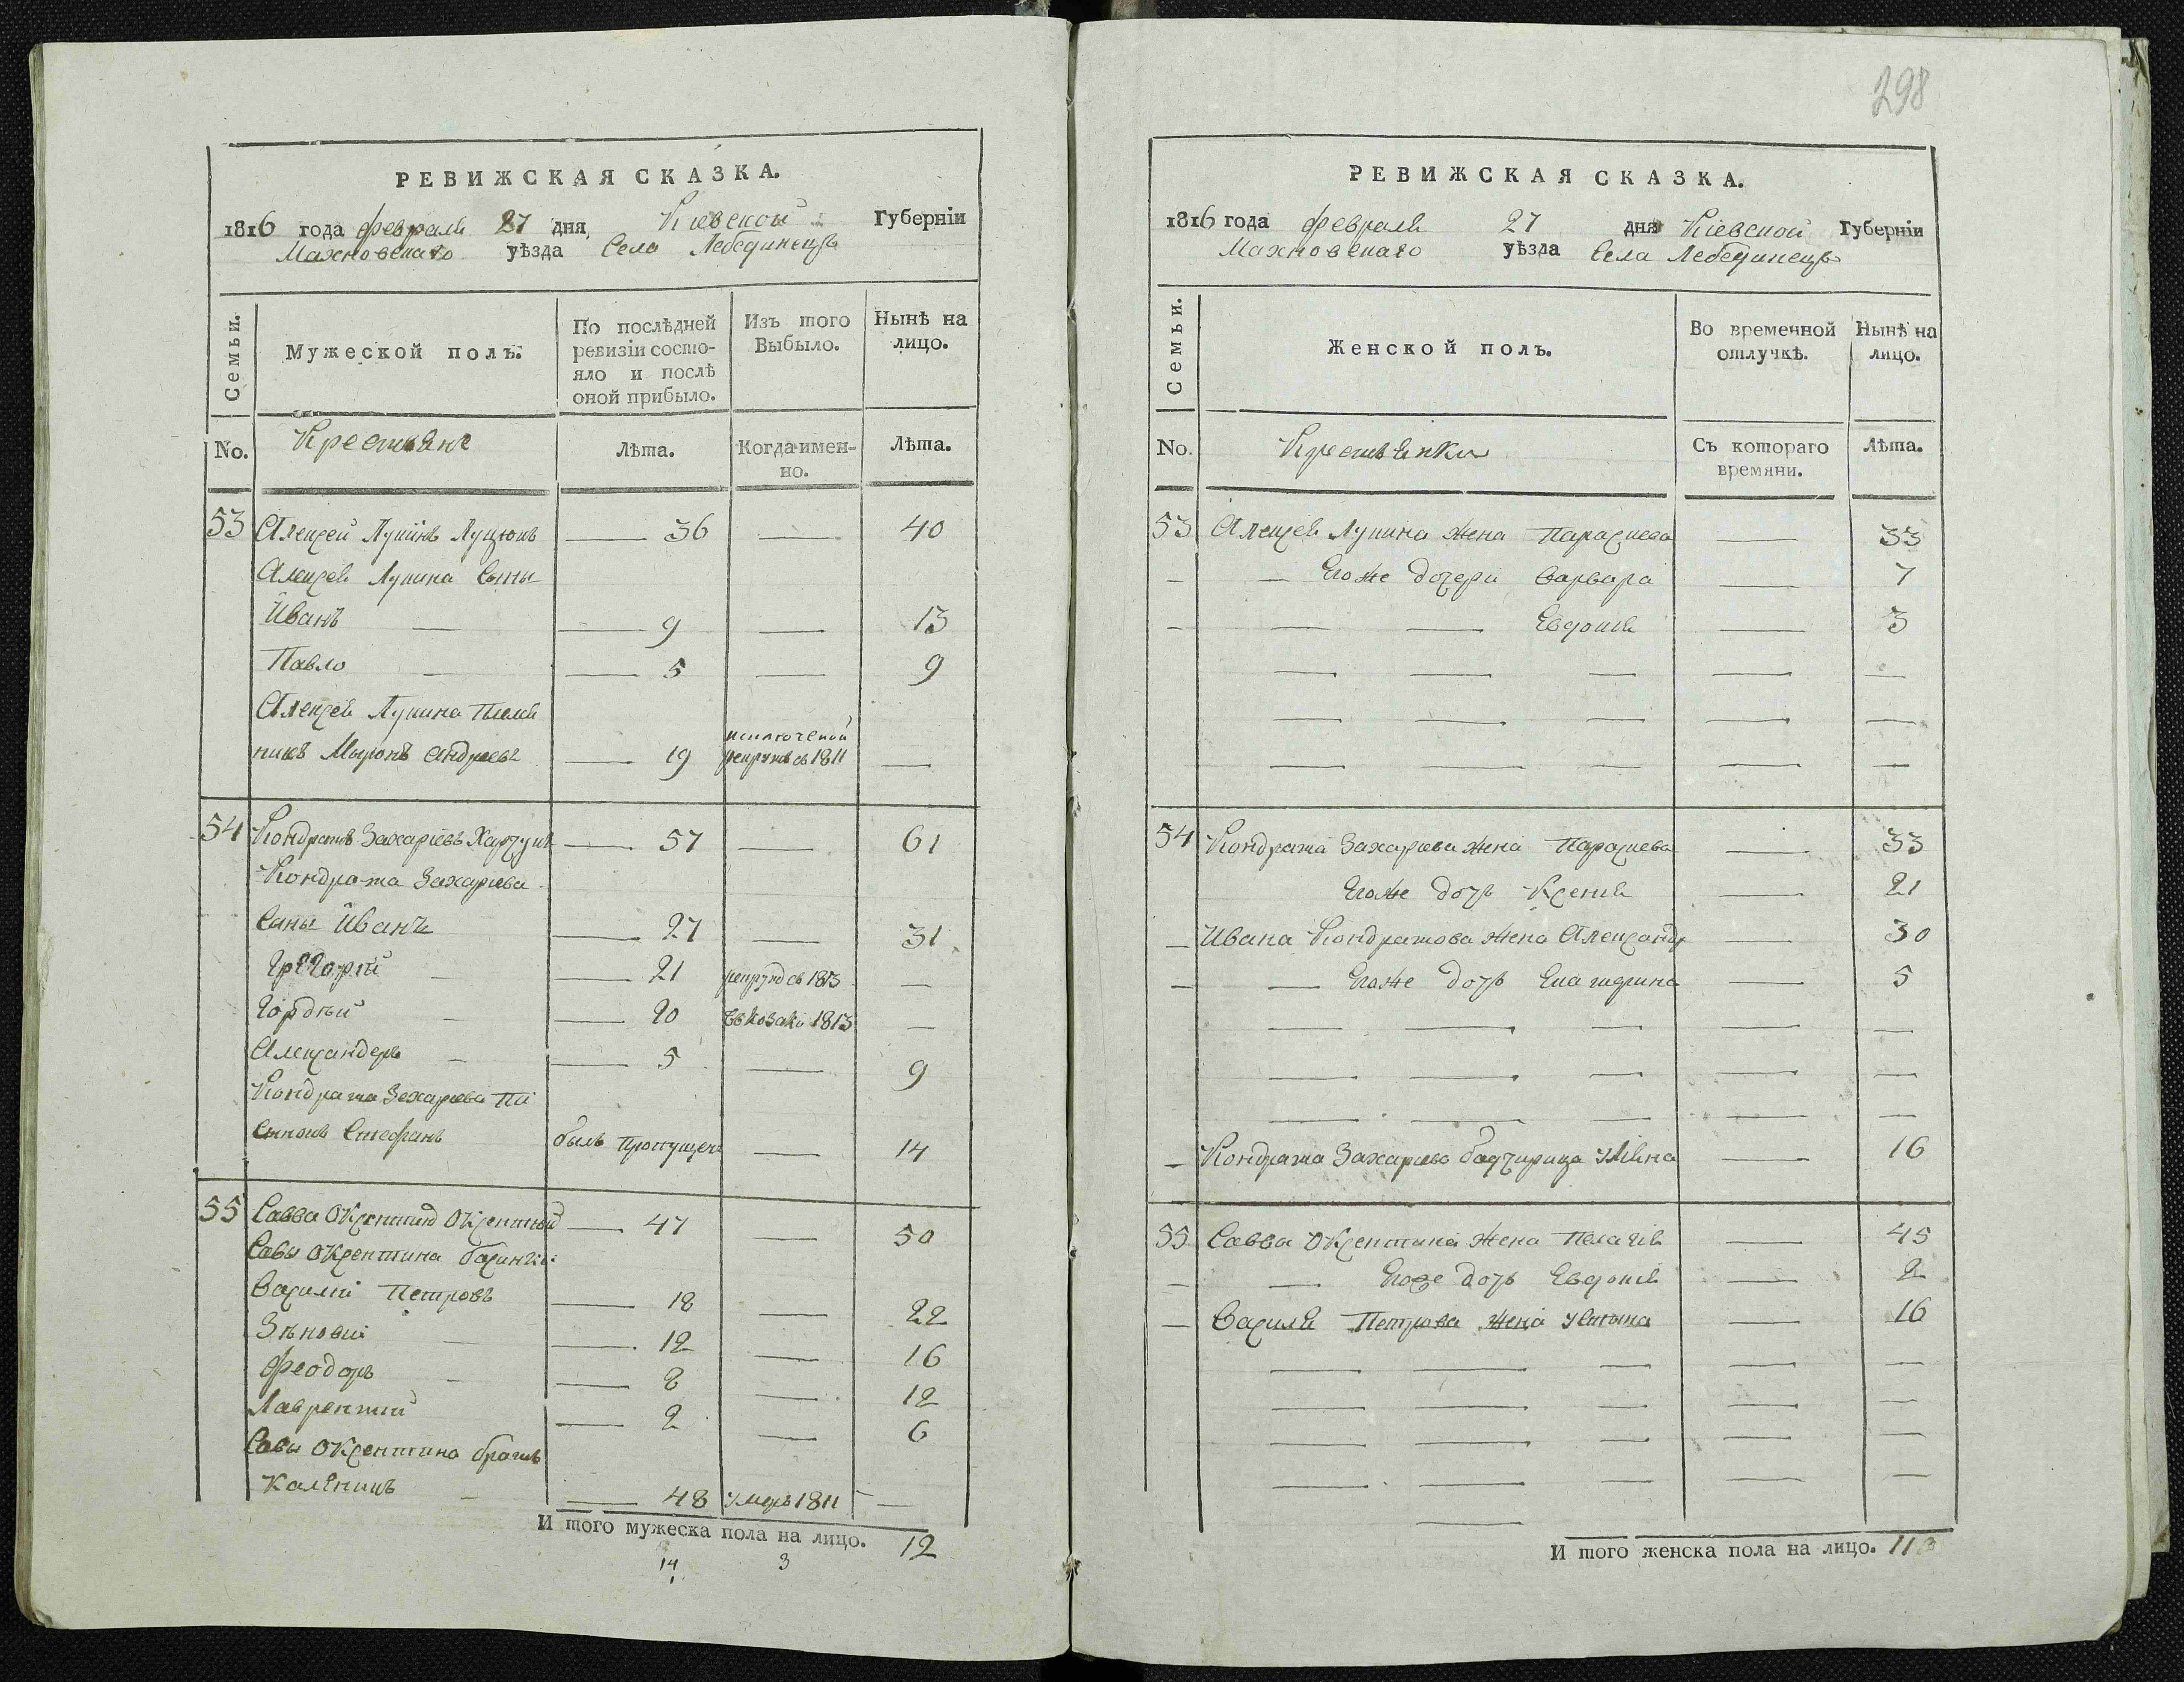 РЕВИЖСКАЯ СКАЗКА.
1816 года февраля 27 дня Кіевской Губерніи
Махновскаго уѣзда Села Лебединецъ
Семьи.
Мужеской полъ.
По послѣдней ревизіи состояло и послѣ оной прибыло.
Изъ того Выбыло.
Нынѣ на лицо.
No. Крестьяне Лѣта. Когда имен-но. Лѣта.
53 Алексей Лукинъ Луцюкъ — 36 — 40
Алексея Лукина Сыны
Иванъ — — 9 — 13
Павло — — 5 — 9
Алексея Лукина Племя
никъ Миронъ Андреевъ — 19 исключеной рекрутъ съ 1811 —
54 Кондратъ Захаріевъ — 57 — 61
Кондрата Захариева
Сыны Иванъ — 27 — 31
Григорій — — 21 рекрутъ съ 1813 —
Гордѣй — — 20 въ козаки 1813 —
Александеръ — — 5 — 9
Кондрата Захариева Па
сынокъ Стефанъ былъ пропущенъ — 14
55 Савва Оксентиев Оксентюк — 47 — 50
Савы Оксентина
Василій Петровъ — 18 — 22
Зѣновий — — 12 — 16
Феодоръ — — 8 — 12
Лаврентий — 2 — 6
Савы Оксентина братъ
Каленикъ — — 48 умеръ 1811 —
И того мужеска пола на лицо. 12
14 3
298
РЕВИЖСКАЯ СКАЗКА.
1816 года февраля 27 дня Кіевской Губерніи
Махновскаго уѣзда Села Лебединецъ
Семьи.
Женской полъ.
Во временной отлучкѣ.
Нынѣ на лицо.
No. Крестьянки Съ котораго времяни. Лѣта.
53 Алексея Лукина жена Параскева — 33
— — Егоже дочери Варвара — 7
— — — Евдокия — 3
54 Кондрата Захариева жена Параскева — 33
Егоже дочь Ксения — 21
— Ивана Кондратова жена Александр — 30
— — Егоже дочь Екатерина — 5
— Кондрата Захариева падчирица — 16
55 Савва Оксентина жена Пелагия — 45
— — Егоже дочь Евдокия — 2
— Василя Петрова жена Устина — 16
И того женска пола на лицо. 11